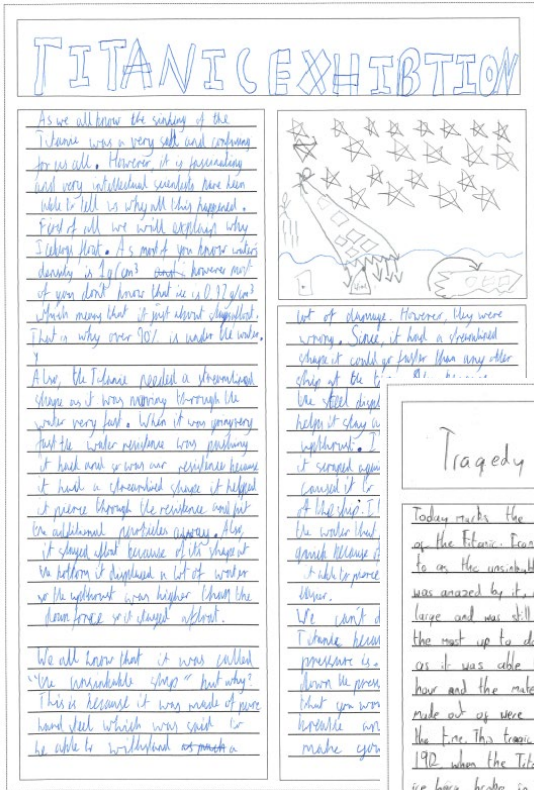 TITANIC EXHIBTION
As we all know the sinking of the
Titanic was a very salt and confusing
for us all. However, it is fascinating
and very intellectual scientists have been
able to tell us why all this happened.
First of all we will explain why
Icebergs float. As most of you know water's
density is 1g/cm³ however most
of you don't know that ice is 0.92g/cm³
which means that it just about
That is why over 90% is under the water.
Also, the Titanic needed a streamlined
shape as it was moving through the
water very fast. When it was going very
fast the water resistence was pushing
it back and so was air resistence because
it had a streamlined shape it helped
it pierce through the resistence and put
the additional particles away. Also,
it stayed afloat because of its shape at
the bottom it displaced a lot of water
so the upthrust was higher than the
down force so it stayed afloat.
We all know that it was called
"the unsinkable ship" but why?
This is because it was made of pure
hard steel which was said to
be able to withstand a
lot of damage. However, they were
wrong. Since, it had a streamlined
shape it could go faster than any other
ship at the
the steel displ
helps it stay a
upthrust. I
it scraped again
caused it to
of the ship. I
the water that
quick because of
it able to pierce
layer.
We can't d
Titanic becau
pressure is
down the press
that you wou
breathe an
make you
Tragedy
Today marks the
of the Titanic.
to as the unsinkab
was amazed by it,
large and was still
the most up to da
as it was able
hour and the mate
made out of were
the time. This tragic
1912 when the Tita